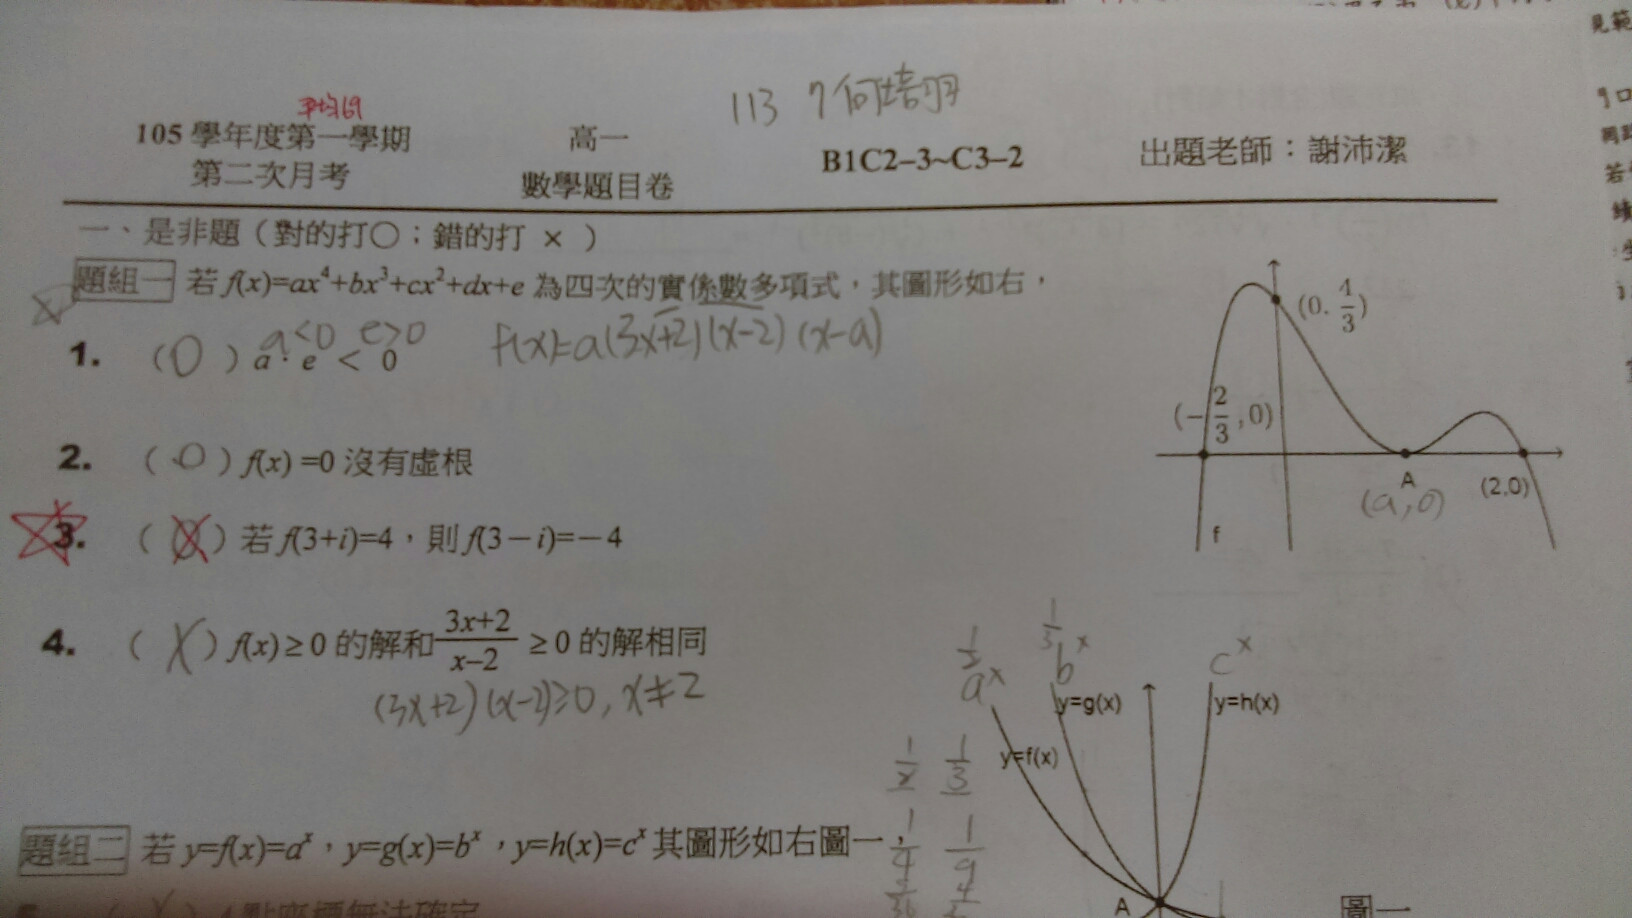 平均69
113 何培羽
105 學年度第一學期 高一 B1C2–3~C3–2 出題老師：謝沛潔
第二次月考 數學題目卷
一、是非題（對的打○；錯的打 ×）
題組一 若 f(x)=ax⁴+bx³+cx²+dx+e 為四次的實係數多項式，其圖形如右，
a<0 e>0 f(x)=a(3x+2)(x-2)(x-a)
1. (O) a · e < 0
2. (O) f(x) =0 沒有虛根
3. ( ) 若 f(3+i)=4，則 f(3－i)=－4
4. (X) f(x) ≥ 0 的解和 3x+2/x–2 ≥ 0 的解相同
(3x+2)(x-2)≥0, x≠2
(0. 4/3)
(-2/3,0)
A
(a,0)
(2,0)
f
1/2 1/3
aˣ bˣ cˣ
y=g(x) y=h(x)
y=f(x)
1/3
1/4 1/9
題組二 若 y=f(x)=aˣ，y=g(x)=bˣ，y=h(x)=cˣ 其圖形如右圖一，
A 圖一
點座標無法確定